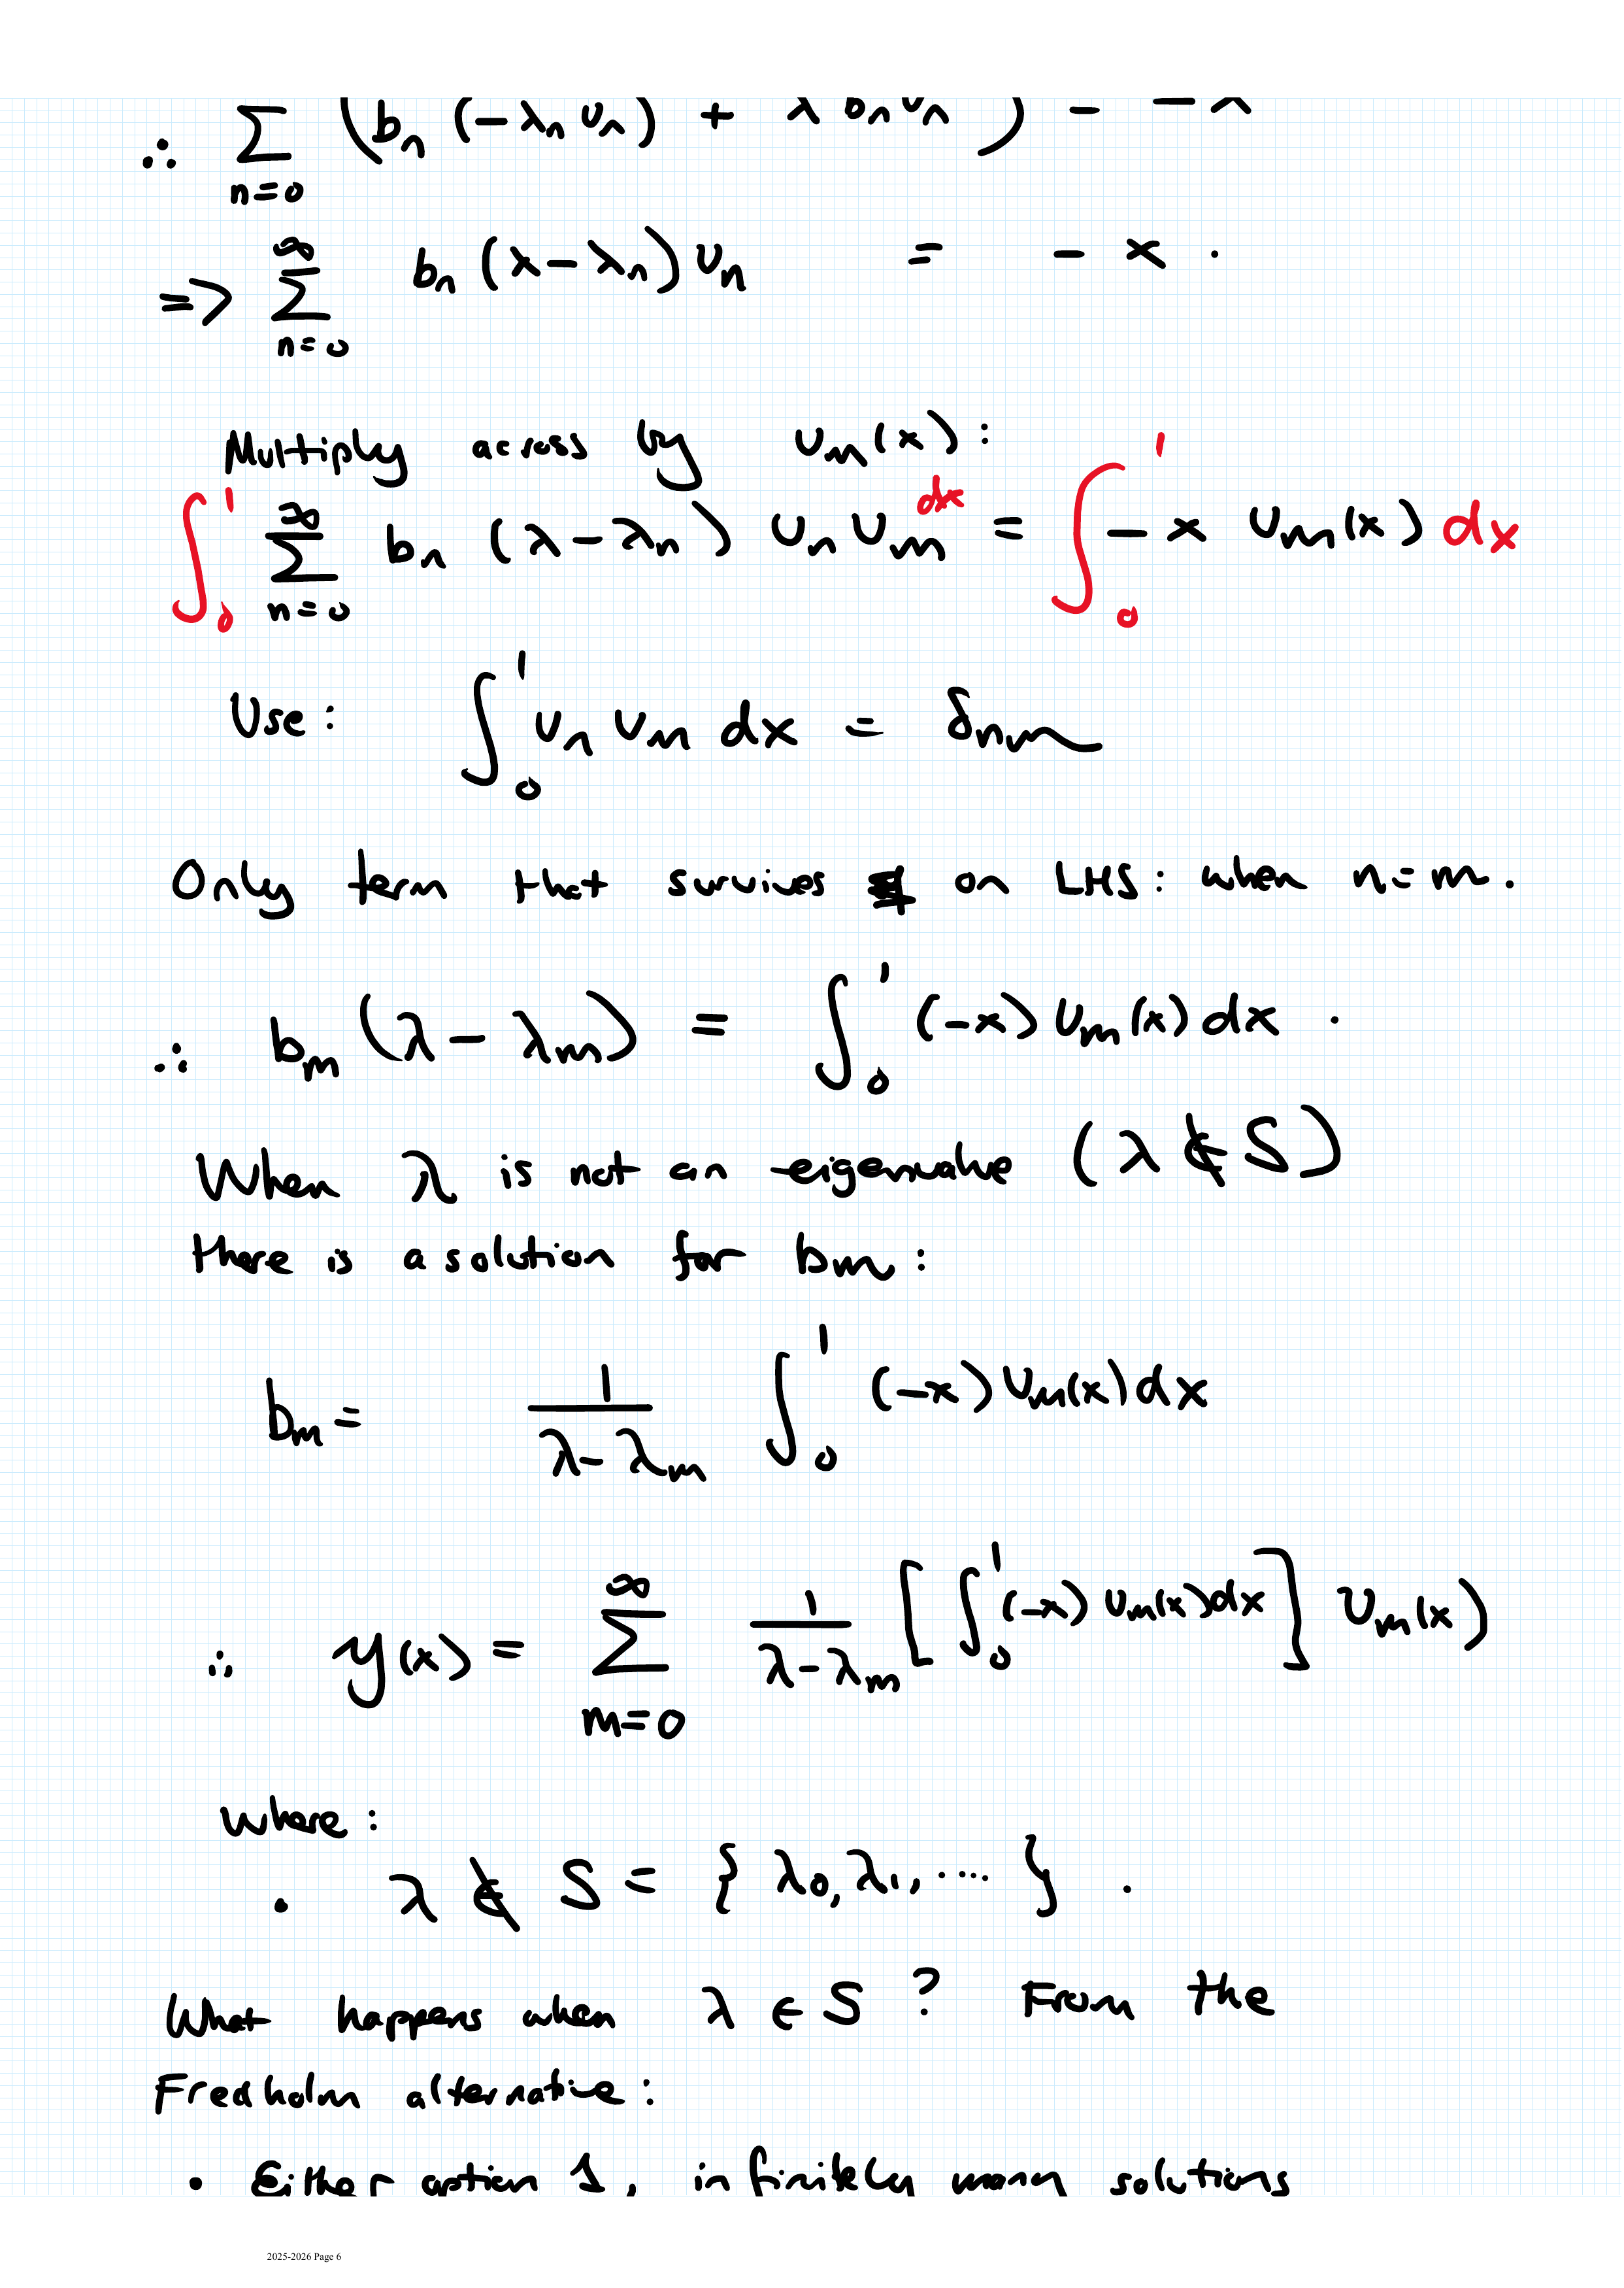 ∴ ∑_{n=0} (b_n (-λ_n u_n) + λ b_n u_n) = -x
=> ∑_{n=0}^{∞} b_n (λ-λ_n) u_n = -x.
Multiply across by u_m(x):
∫_0^1 ∑_{n=0}^{∞} b_n (λ-λ_n) u_n u_m dx = ∫_0^1 -x u_m(x) dx
Use: ∫_0^1 u_n u_m dx = δ_{nm}
Only term that survives on LHS: when n=m.
∴ b_m (λ-λ_m) = ∫_0^1 (-x) u_m(x) dx.
When λ is not an eigenvalue (λ ∉ S)
there is a solution for b_m:
b_m = \frac{1}{λ-λ_m} ∫_0^1 (-x) u_m(x) dx
∴ y(x) = ∑_{m=0}^{∞} \frac{1}{λ-λ_m} [∫_0^1 (-x) u_m(x) dx] u_m(x)
Where:
• λ ∉ S = {λ_0, λ_1, ....}.
What happens when λ ∈ S? From the
Fredholm alternative:
• Either option 1, infinitely many solutions
2025-2026 Page 6